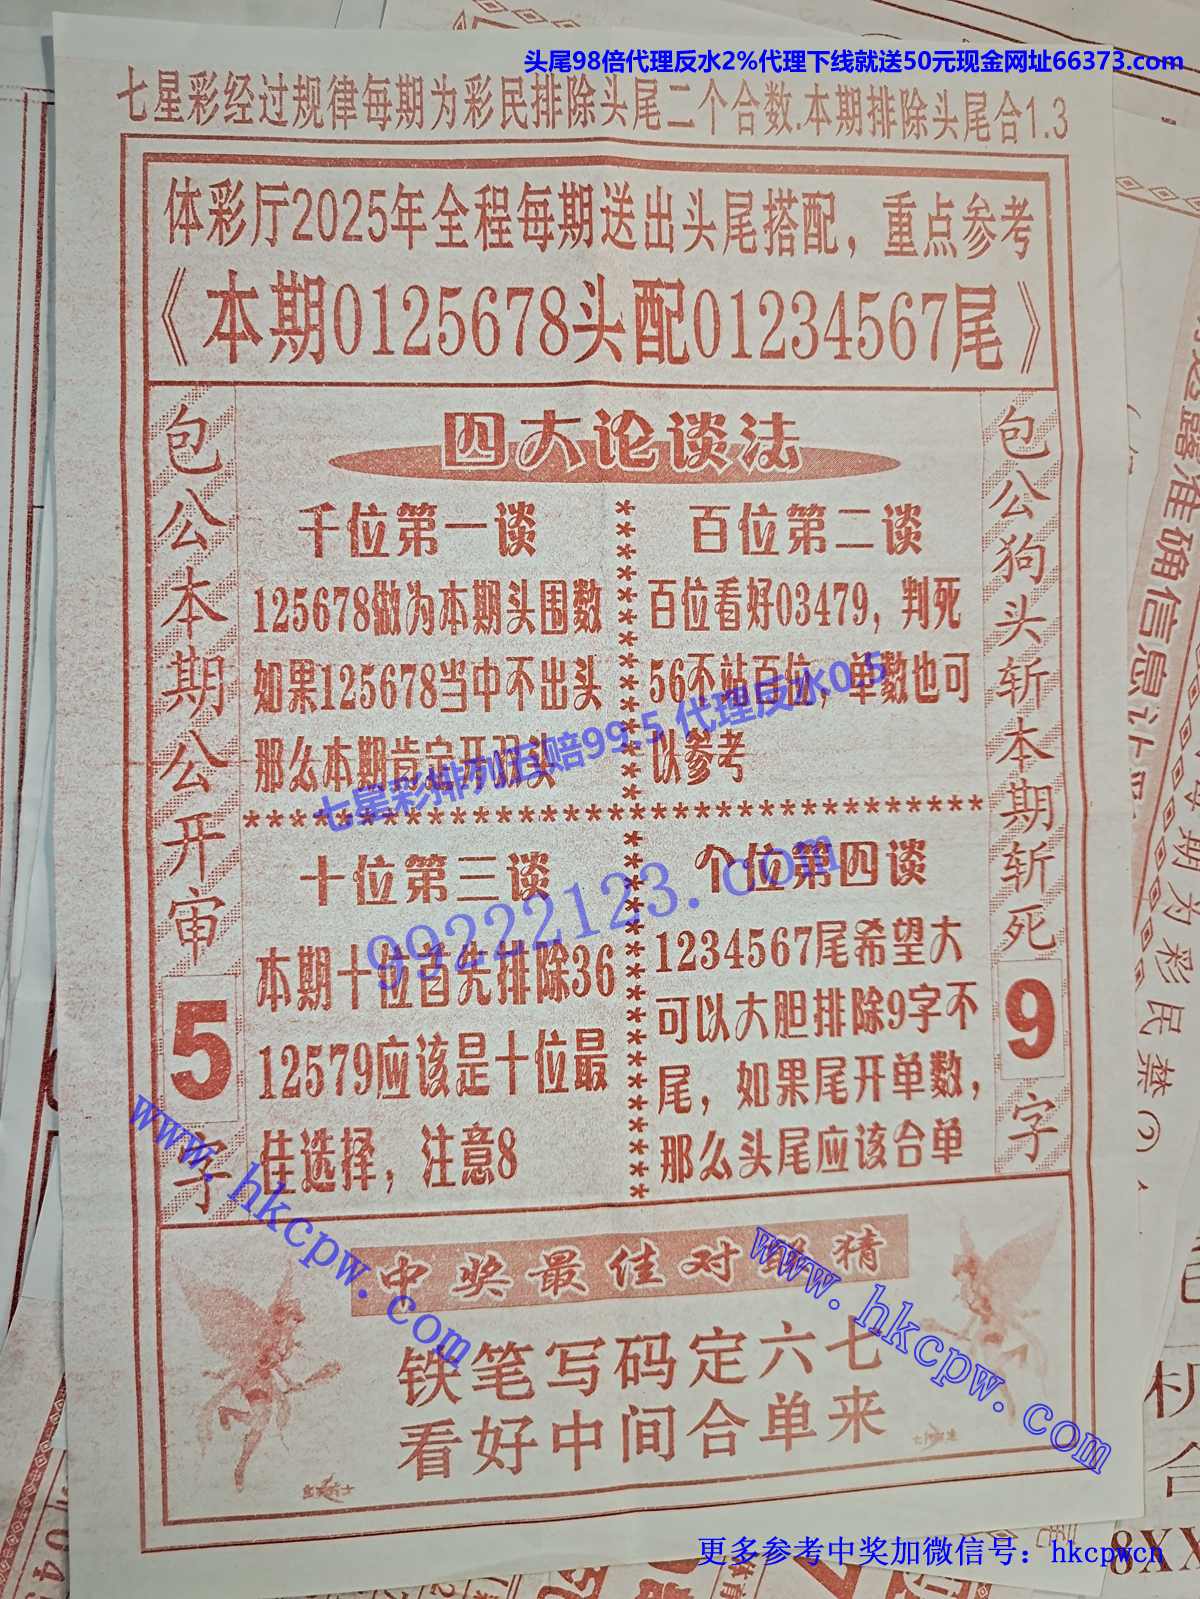 头尾98倍代理反水2%代理下线就送50元现金网址66373.com
七星彩经过规律每期为彩民排除头尾二个合数.本期排除头尾合1.3
体彩厅2025年全程每期送出头尾搭配，重点参考
《本期0125678头配01234567尾》
包公本期公开审5字
四大论谈法
千位第一谈
125678做为本期头围数
如果125678当中不出头
那么本期肯定开
百位第二谈
百位看好03479，判死
56不站百位，单数也可
以参考
七星彩排列五赔99.5 代理反水0.5
99222123.com
十位第三谈
本期十位首先排除36
12579应该是十位最
佳选择，注意8
个位第四谈
1234567尾希望大
可以大胆排除9字不
尾，如果尾开单数，
那么头尾应该合单
包公狗头斩本期斩死9字
www.hkcpw.com
www.hkcpw.com
中奖最佳对 猜
铁笔写码定六七
看好中间合单来
更多参考中奖加微信号：hkcpwcn
8XX
准确信息
期为彩民禁